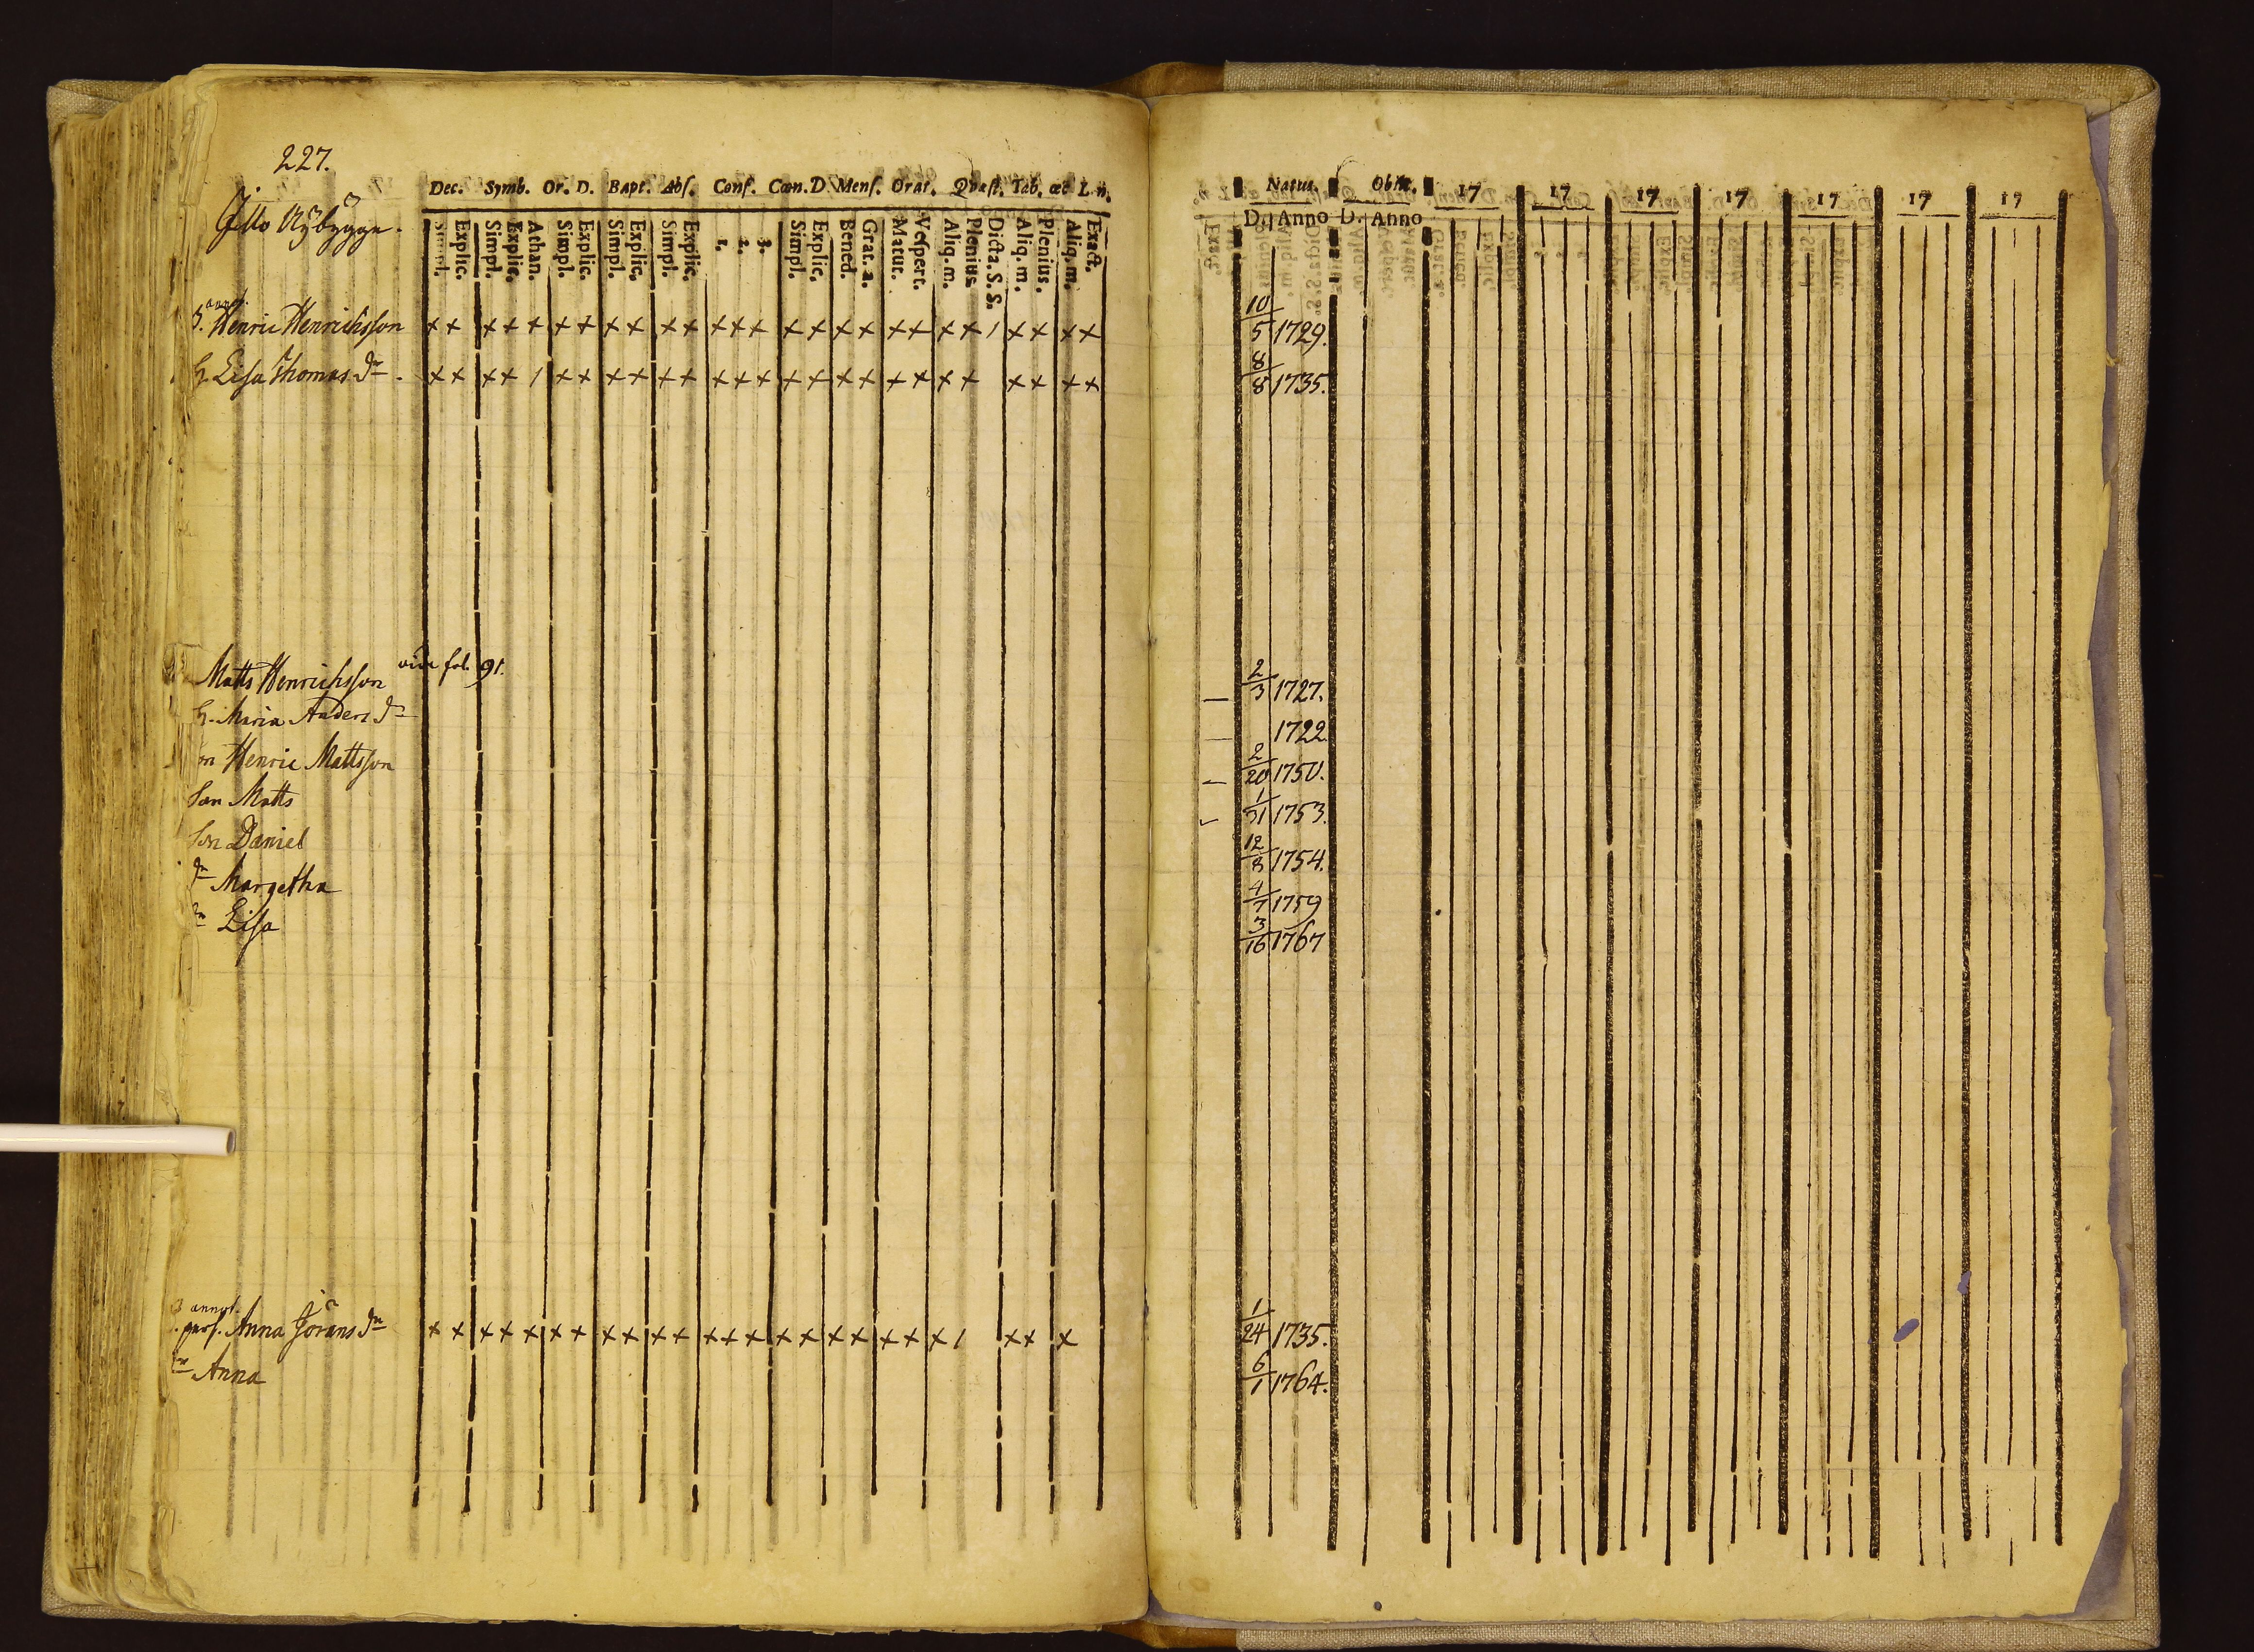 227.
Dec. Symb. Or. D. Bapt. Abſ. Conf. Cœn. D. Menſ. Orat. Quæſt. Tab. œc L. n.
Jllo Nÿbÿgge.
Simpl. Explic. Simpl. Explic. Athan. Simpl. Explic. Simpl. Explic. Simpl. Explic. 1. 2. 3. Simpl. Explic. Bened. Grat. a. Matut. Veſpert. Aliq. m. Plenius Dicta. S. S. Aliq. m. Plenius. Aliq. m. Exact.
annot.
Henric Henrichsson x x x x x x x x x x x x x x x x x x x x x x / x x x x
h. Lisa Thomas dr. x x x x / x x x x x x x x x x x x x x x x x x x x x
Matts Henrichsson vide fol. 91.
h. Maria Anders dr
Henric Mattsson
Son Matts
Son Daniel
dr Margetha
dr Lisa
annot.
Anna Jörans dr x x x x x x x x x x x x x x x x x x x x x / x x x
dr Anna
Natus. Obiit. 17 17 17 17 17 17 17
D. Anno D. Anno
10/5 1729.
8/8 1735.
2/3 1727.
1722
2/20 1750.
1/31 1753.
12/8 1754.
4/7 1759
3/16 1767
1/24 1735.
6/1 1764.